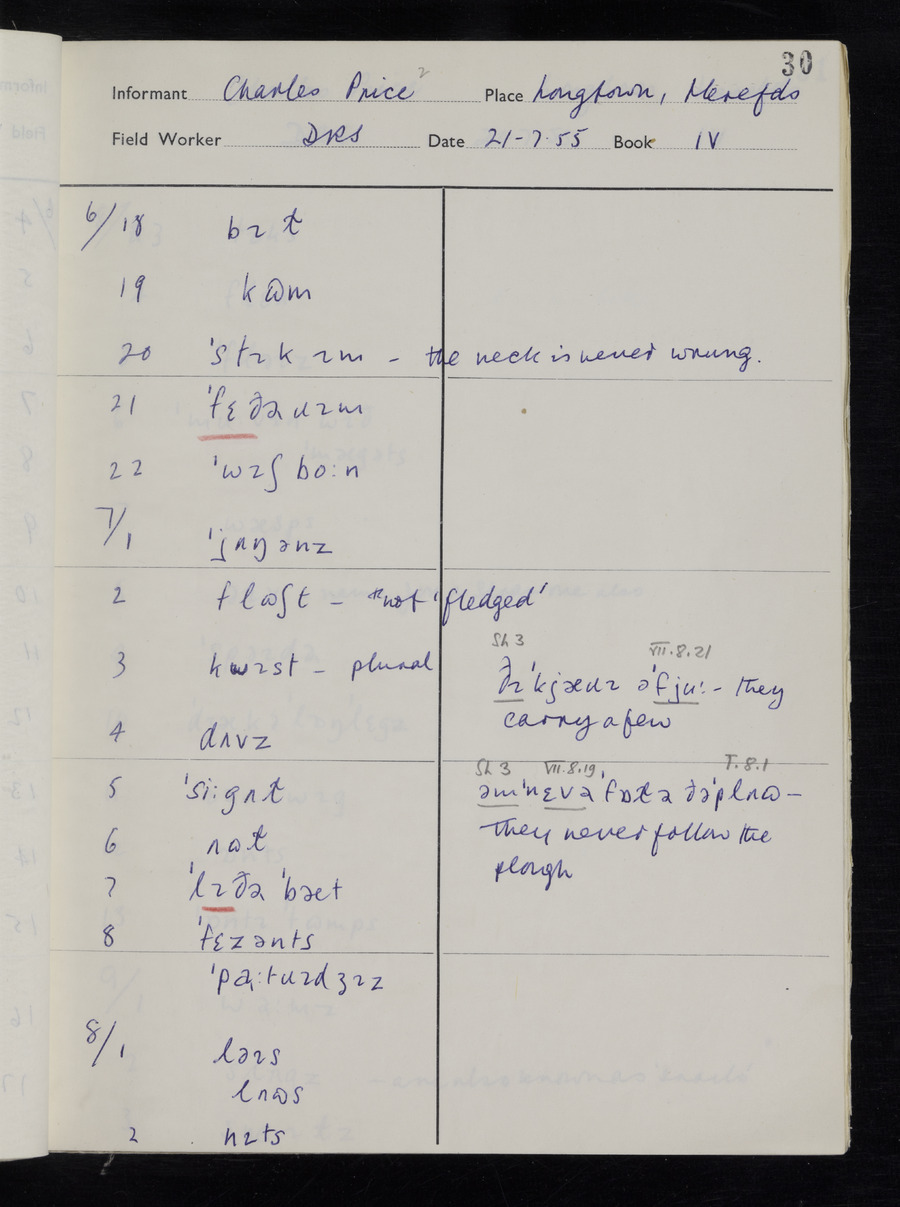 30
Informant Charles Price² Place Longtown, Herefds
Field Worker DRS Date 21-7-55 Book IV
6/18 bɪt
19 kɷm
20 ˈstɪkɪm – the neck is never wrung.
21 ˈfɛðəɹɪm
22 ˈwɪʃboːn
7/1 ˈjʌŋənz
2 flɷʃt – not 'fledged'
3 kwɪst – plural
Sh 3 VII.8.21
ðɪˈkjæɹɪ əˈfjuː – they
carry a few
4 dʌvz
5 ˈsiːgʌt
Sh 3 VII.8.19 T.8.1
əmˈnɛvəˈfɒlə ðəˈplʌɷ –
they never follow the
plough
6 ʌɷl
7 ˈlɪðəˈbæt
8 ˈfɛzənts
ˈpaːtɹɪdʒɪz
8/1 ləɪs
lʌɷs
2 nɪts